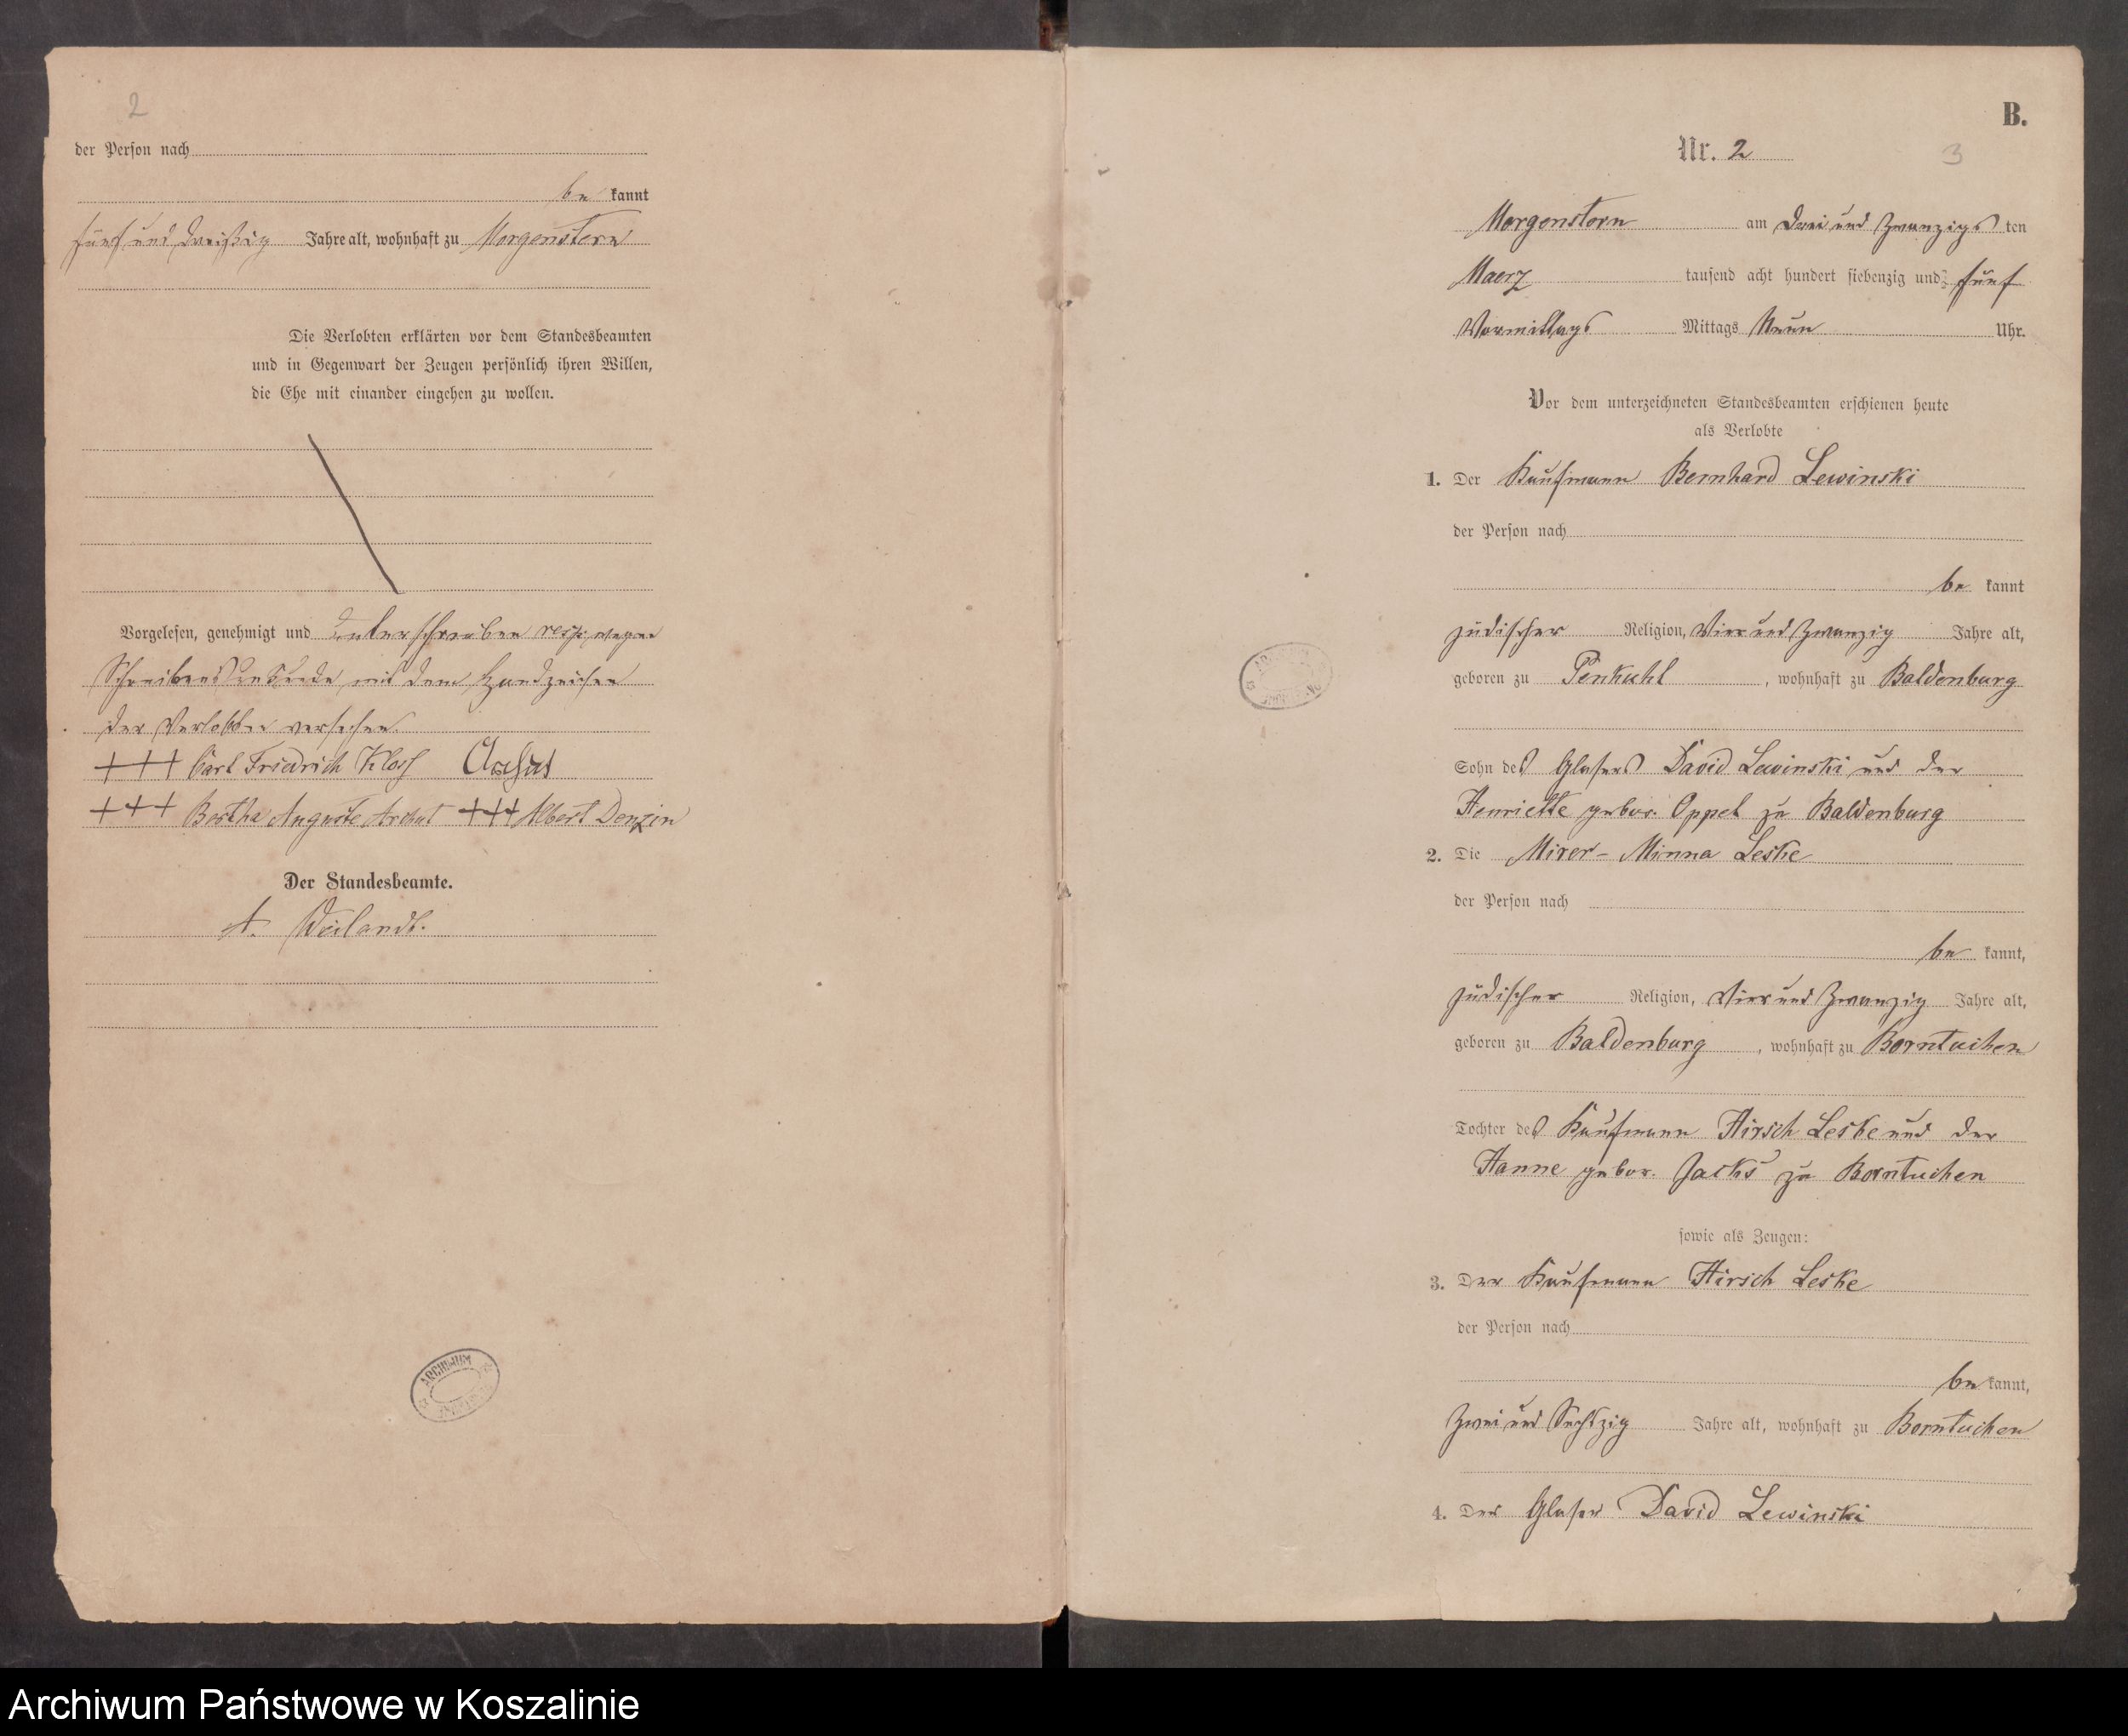 2
der Person nach
be kannt
fünf und dreißig Jahre alt, wohnhaft zu Morgenstern
Die Verlobten erklärten vor dem Standesbeamten
und in Gegenwart der Zeugen persönlich ihren Willen,
die Ehe mit einander eingehen zu wollen.
Vorgelesen, genehmigt und unterschrieben resp. wegen
Schreibensunkunde mit dem Handzeichen
der Verlobten versehen.
+++ Carl Friedrich Kloß
+++ Bertha Auguste Archut +++ Albert Denzin
Der Standesbeamte.
A. Weilandt.
ARCHIWUM
B.
Nr. 2
3
Morgenstern am Drei und Zwanzigs ten
Maerz tausend acht hundert siebenzig und fünf
Vormittags Mittags Neun Uhr.
Vor dem unterzeichneten Standesbeamten erschienen heute
als Verlobte
1. Der Kaufmann Bernhard Lewinski
der Person nach
be kannt
jüdischer Religion, Vier und Zwanzig Jahre alt,
geboren zu Penkuhl, wohnhaft zu Baldenburg
Sohn des Glasers David Lewinski und der
Henriette gebor. Oppel zu Baldenburg
2. Die Mirer- Minna Leske
der Person nach
be kannt,
jüdischer Religion, Vier und Zwanzig Jahre alt,
geboren zu Baldenburg, wohnhaft zu Borntuchen
Tochter des Kaufmann Hirsch Leske und der
Hanne gebor. Jacks zu Borntuchen
sowie als Zeugen:
3. Der Kaufmann Hirsch Leske
der Person nach
be kannt,
Zwei und Sechszig Jahre alt, wohnhaft zu Borntuchen
4. Der Glaser David Lewinski
Archiwum Państwowe w Koszalinie